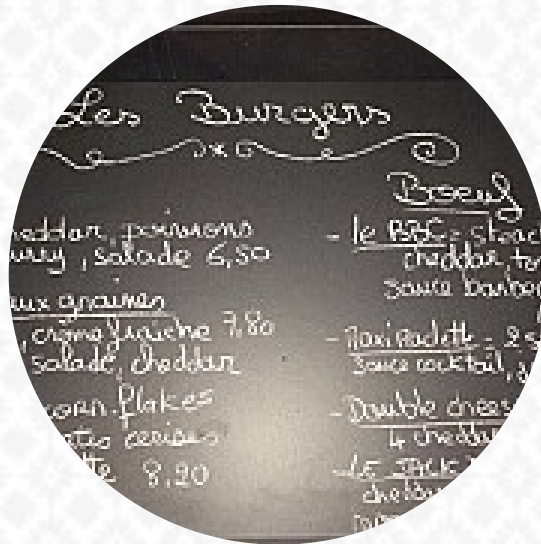 Les Burgers
cheddar, poivrons
curry, salade 6,50
aux graines
, crème fraîche 7,80
salade, cheddar
corn flakes
cerises
8,20
Boeuf
- le BBG = steack
cheddar, to
sauce barbec
- Maxi Raclette = 2 s
sauce cocktail,
- Double chees
4 cheddar
- LE JACK
cheddar